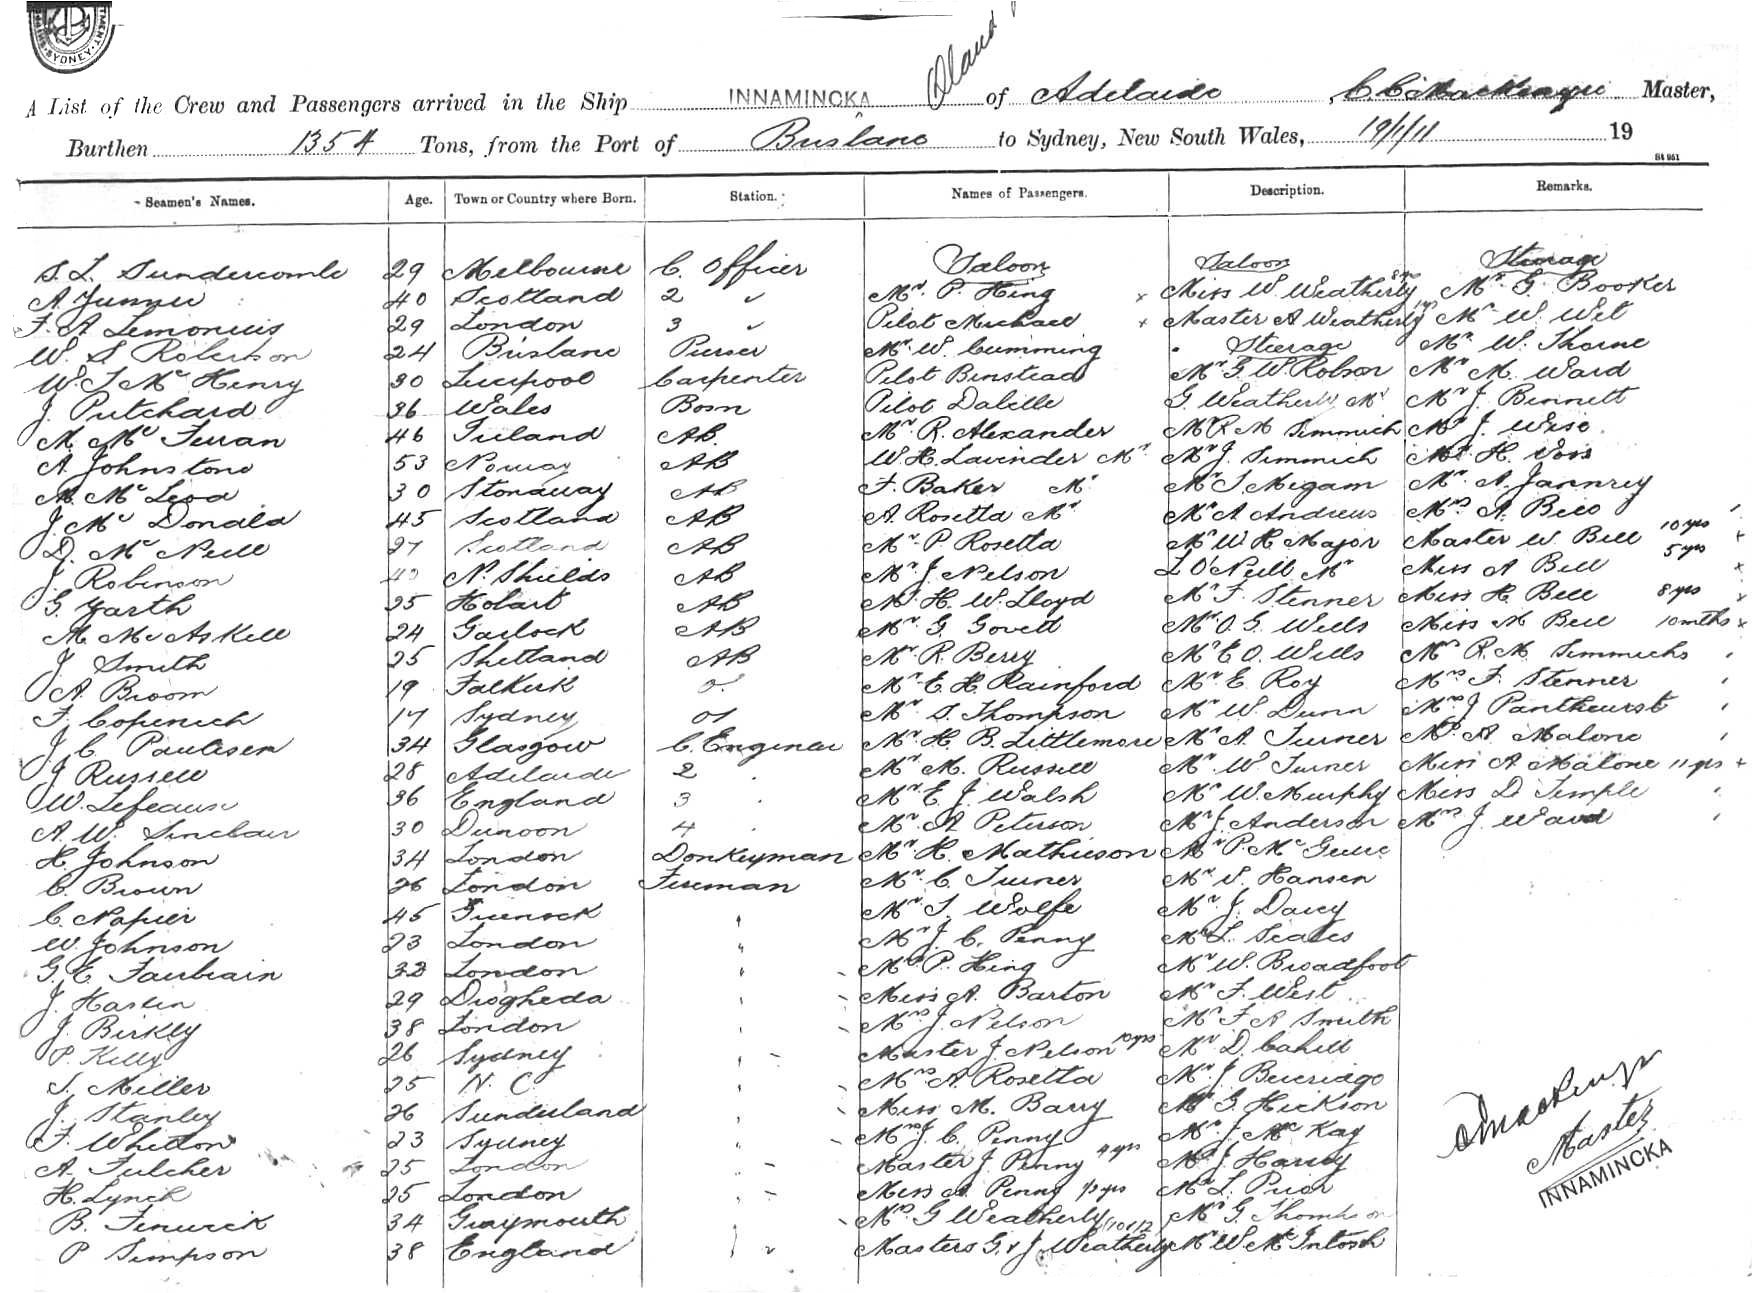 SYDNEY
A List of the Crew and Passengers arrived in the Ship INNAMINCKA of Adelaide, C. C. Mackenzie Master,
Burthen 1354 Tons, from the Port of Brisbane to Sydney, New South Wales, 19/1/11 19
St 951
Seamen's Names. Age. Town or Country where Born. Station. Names of Passengers. Description. Remarks.
Saloon Saloon Steerage
S. L. Sundercombe 29 Melbourne C. Officer
A 40 Scotland 2 " Mr. P. King x Miss W. Weatherly 8 yrs Mr G. Booker
F. A Lemonius 29 London 3 " Pilot Michael x Master A Weatherly Mr W.
W. S Robertson 24 Brisbane Purser Mr. W. Cumming Steerage Mr W. Thorne
W. J Mc Henry 30 Liverpool Carpenter Pilot Binstead Mr G. W Robson Mr M. Ward
J. Pritchard 36 Wales Bosn Pilot Dalille G. Weatherly Mr Mr J. Bennett
M. Mc Ferran 46 Ireland AB. Mr. R. Alexander Mr R. M Simmich Mr J. Wise.
A. Johnstone 53 Norway AB W. H. Lavinder Mr Mr J. Simmich Mr. H. Voss
M. Mc Leod 30 Stonaway AB F. Baker Mr Mr J. Megam Mr. A.
J. Mc Donald 45 Scotland AB A. Rosetta Mr Mr A Andrews Mrs A. Bell
D. Mc Neill 27 Scotland AB Mr. P. Rosetta Mr W. H Major Master W. Bell 10 yrs x
J. Robinson 40 N. Shields AB Mr. J. Nelson L O'Neill Mr Miss A Bell 5 yrs x
G. Garth 25 Hobart AB Mr H. W. Lloyd Mr F. Stenner Miss H. Bell 8 yrs x
M. Mc Askell 24 Garlock AB Mr. G. Govett Mr O. G. Wells Miss M Bell 10 mths x
J. Smith 25 Shetland AB Mr. R. Berry Mr E O. Wills Mrs R. M. Simmichs
A. Broom 19 Falkirk Mr. E. H. Rainford Mr E. Roy Mrs F. Stenner
F. Copenich 17 Sydney Mr. S. Thompson Mr W. Dunn Mrs J Panthurst
J. C. Paulisen 34 Glasgow C. Engineer Mr H. B. Littlemore Mr A. Turner Mrs A Malone
J Russell 28 Adelaide 2 " Mr. M. Russell Mr. W. Turner Miss A Malone 11 yrs +
W. 36 England 3 " Mr. E. J. Walsh Mr W. Murphy Miss D Temple
A. W. Sinclair 30 Dunoon 4 " Mr. A Peterson Mr J. Anderson Mrs J Ward
H. Johnson 34 London Donkeyman Mr. H. Mathieson Mr P. Mc Guire
C. Brown 26 London Fireman Mr C. Turner Mr V. Hansen
C. Napier 45 Greenock " Mr S. Wolfe Mr. J. Darcy
W. Johnson 23 London " Mr J. C. Penny Mr L. Scales
G. E Fairbrain 33 London " Mrs P. King Mr W. Broadfoot
J. Haslin 29 Drogheda " Miss A. Barton Mr F. West
J. Birkly 38 London " Mrs J. Nelson Mr F. A Smith
P. Kelly 26 Sydney " Master J. Nelson 10 yrs Mr D. Cahill
J. Miller 25 N. C. " Mrs A. Rosetta Mr J. Beveridge
J. Stanley 26 Sunderland " Miss M. Barry Mr G. Hickson
F. Whitton 23 Sydney " Mrs J. C. Penny Mr J. Mc Kay
A. Fulcher 25 London " Master J. Penny 4 yrs Mr J. Harvey
H. Lynch 25 London " Miss A. Penny Mr L. Prior
B. Fenwick 34 Graymouth " Mrs G Weatherly Mr G. Thompson
P Simpson 38 England " Masters G. & J. Weatherly 10 & 12 Mr W. McIntosh
C Mackenzie
Master
INNAMINCKA